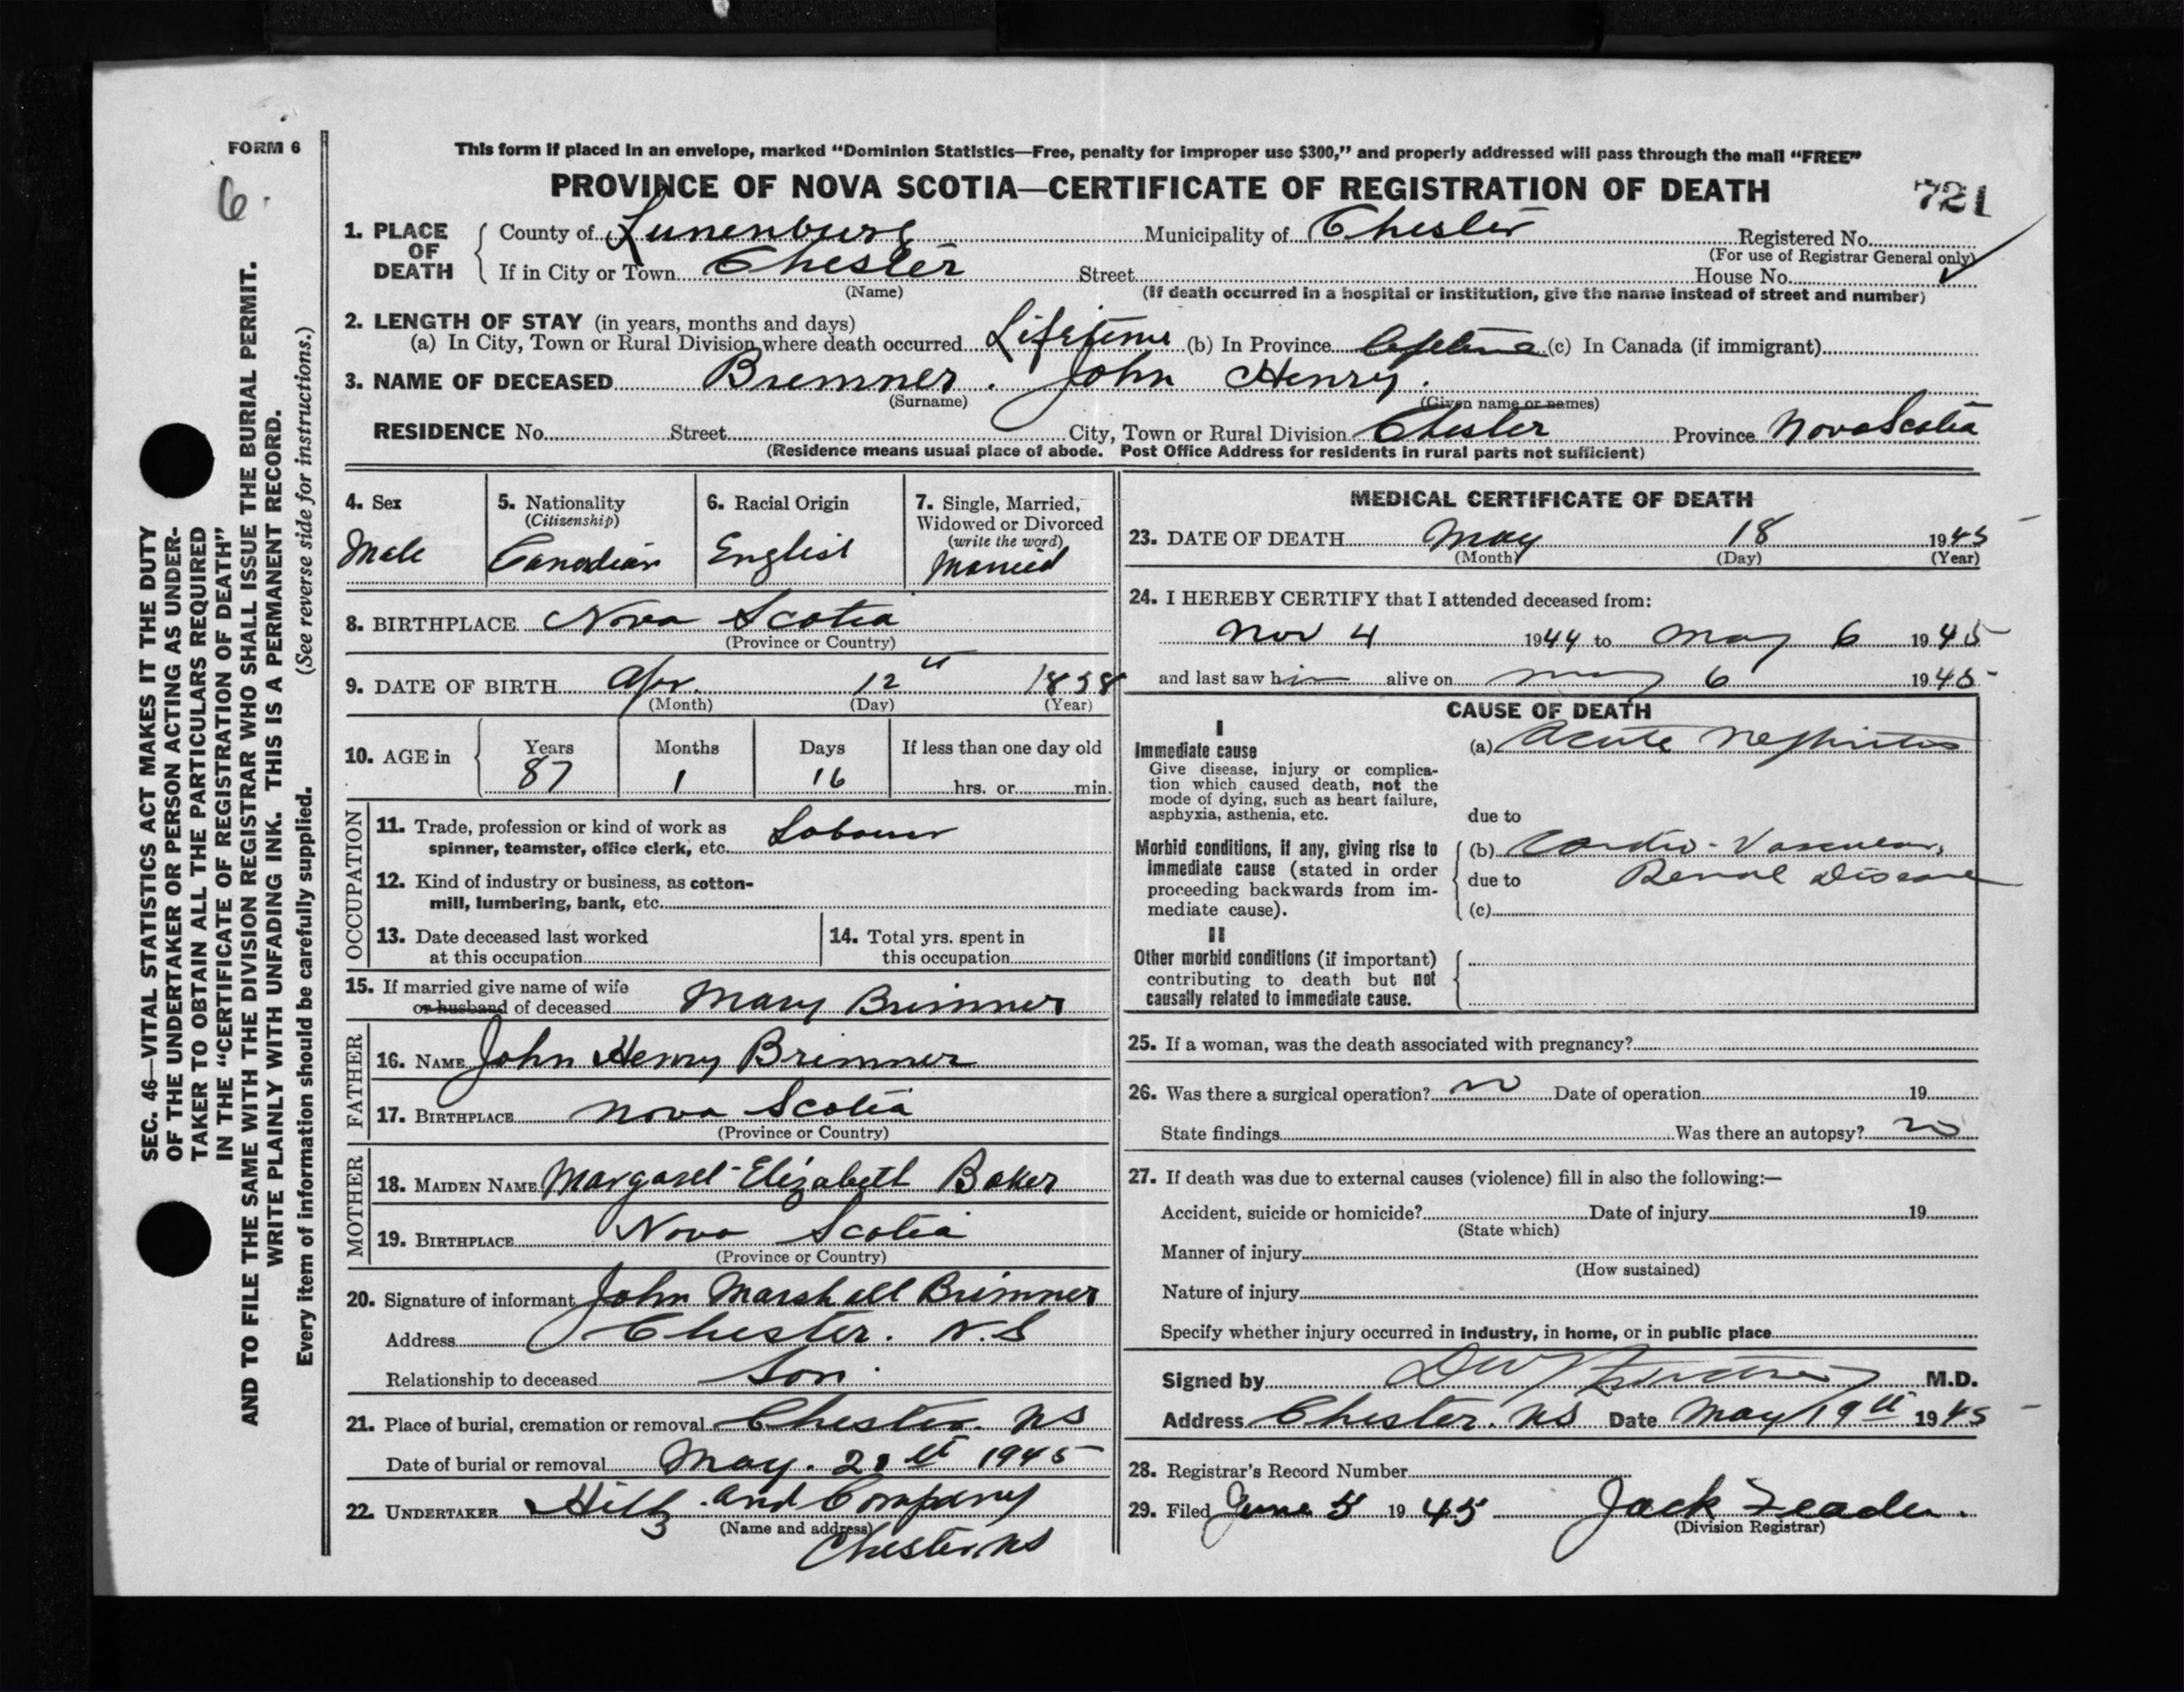 FORM 6
6.
SEC. 46—VITAL STATISTICS ACT MAKES IT THE DUTY
OF THE UNDERTAKER OR PERSON ACTING AS UNDER-
TAKER TO OBTAIN ALL THE PARTICULARS REQUIRED
IN THE "CERTIFICATE OF REGISTRATION OF DEATH"
AND TO FILE THE SAME WITH THE DIVISION REGISTRAR WHO SHALL ISSUE THE BURIAL PERMIT.
WRITE PLAINLY WITH UNFADING INK. THIS IS A PERMANENT RECORD.
Every item of information should be carefully supplied. (See reverse side for instructions.)
This form if placed in an envelope, marked "Dominion Statistics—Free, penalty for improper use $300," and properly addressed will pass through the mail "FREE"
PROVINCE OF NOVA SCOTIA—CERTIFICATE OF REGISTRATION OF DEATH
721
1. PLACE OF DEATH
County of Lunenburg Municipality of Chester Registered No.
(For use of Registrar General only)
If in City or Town Chester Street House No.
(Name) (If death occurred in a hospital or institution, give the name instead of street and number)
2. LENGTH OF STAY (in years, months and days)
(a) In City, Town or Rural Division where death occurred Lifetime (b) In Province Lifetime (c) In Canada (if immigrant)
3. NAME OF DECEASED Bremner. John Henry.
(Surname) (Given name or names)
RESIDENCE No. Street City, Town or Rural Division Chester Province Nova Scotia
(Residence means usual place of abode. Post Office Address for residents in rural parts not sufficient)
4. Sex
Male
5. Nationality
(Citizenship)
Canadian
6. Racial Origin
English
7. Single, Married,
Widowed or Divorced
(write the word)
Married
8. BIRTHPLACE Nova Scotia
(Province or Country)
9. DATE OF BIRTH Apr. 12th 1858
(Month) (Day) (Year)
10. AGE in
Years Months Days If less than one day old
87 1 16 hrs. or min.
OCCUPATION
11. Trade, profession or kind of work as
spinner, teamster, office clerk, etc. Labourer
12. Kind of industry or business, as cotton-
mill, lumbering, bank, etc.
13. Date deceased last worked
at this occupation
14. Total yrs. spent in
this occupation
15. If married give name of wife
or husband of deceased Mary Brimner
FATHER
16. NAME John Henry Brimner
17. BIRTHPLACE Nova Scotia
(Province or Country)
MOTHER
18. MAIDEN NAME Margaret Elizabeth Baker
19. BIRTHPLACE Nova Scotia
(Province or Country)
20. Signature of informant John Marshall Brimner
Address Chester. N.S
Relationship to deceased Son.
21. Place of burial, cremation or removal Chester. NS
Date of burial or removal May. 1945
22. UNDERTAKER Hiltz and Company
(Name and address)
Chester, NS
MEDICAL CERTIFICATE OF DEATH
23. DATE OF DEATH May 18 1945
(Month) (Day) (Year)
24. I HEREBY CERTIFY that I attended deceased from:
Nov 4 1944 to May 6 1945
and last saw him alive on May 6 1945
CAUSE OF DEATH
I
Immediate cause
Give disease, injury or complica-
tion which caused death, not the
mode of dying, such as heart failure,
asphyxia, asthenia, etc.
(a) Acute Nephritis
due to
Morbid conditions, if any, giving rise to
immediate cause (stated in order
proceeding backwards from im-
mediate cause).
(b) Cardio-Vascular,
due to Renal Disease
(c)
II
Other morbid conditions (if important)
contributing to death but not
causally related to immediate cause.
25. If a woman, was the death associated with pregnancy?
26. Was there a surgical operation? no Date of operation 19
State findings Was there an autopsy? no
27. If death was due to external causes (violence) fill in also the following:—
Accident, suicide or homicide? Date of injury 19
(State which)
Manner of injury
(How sustained)
Nature of injury
Specify whether injury occurred in industry, in home, or in public place
Signed by M.D.
Address Chester. NS Date May 19th 1945
28. Registrar's Record Number
29. Filed June 5 1945 Jack
(Division Registrar)